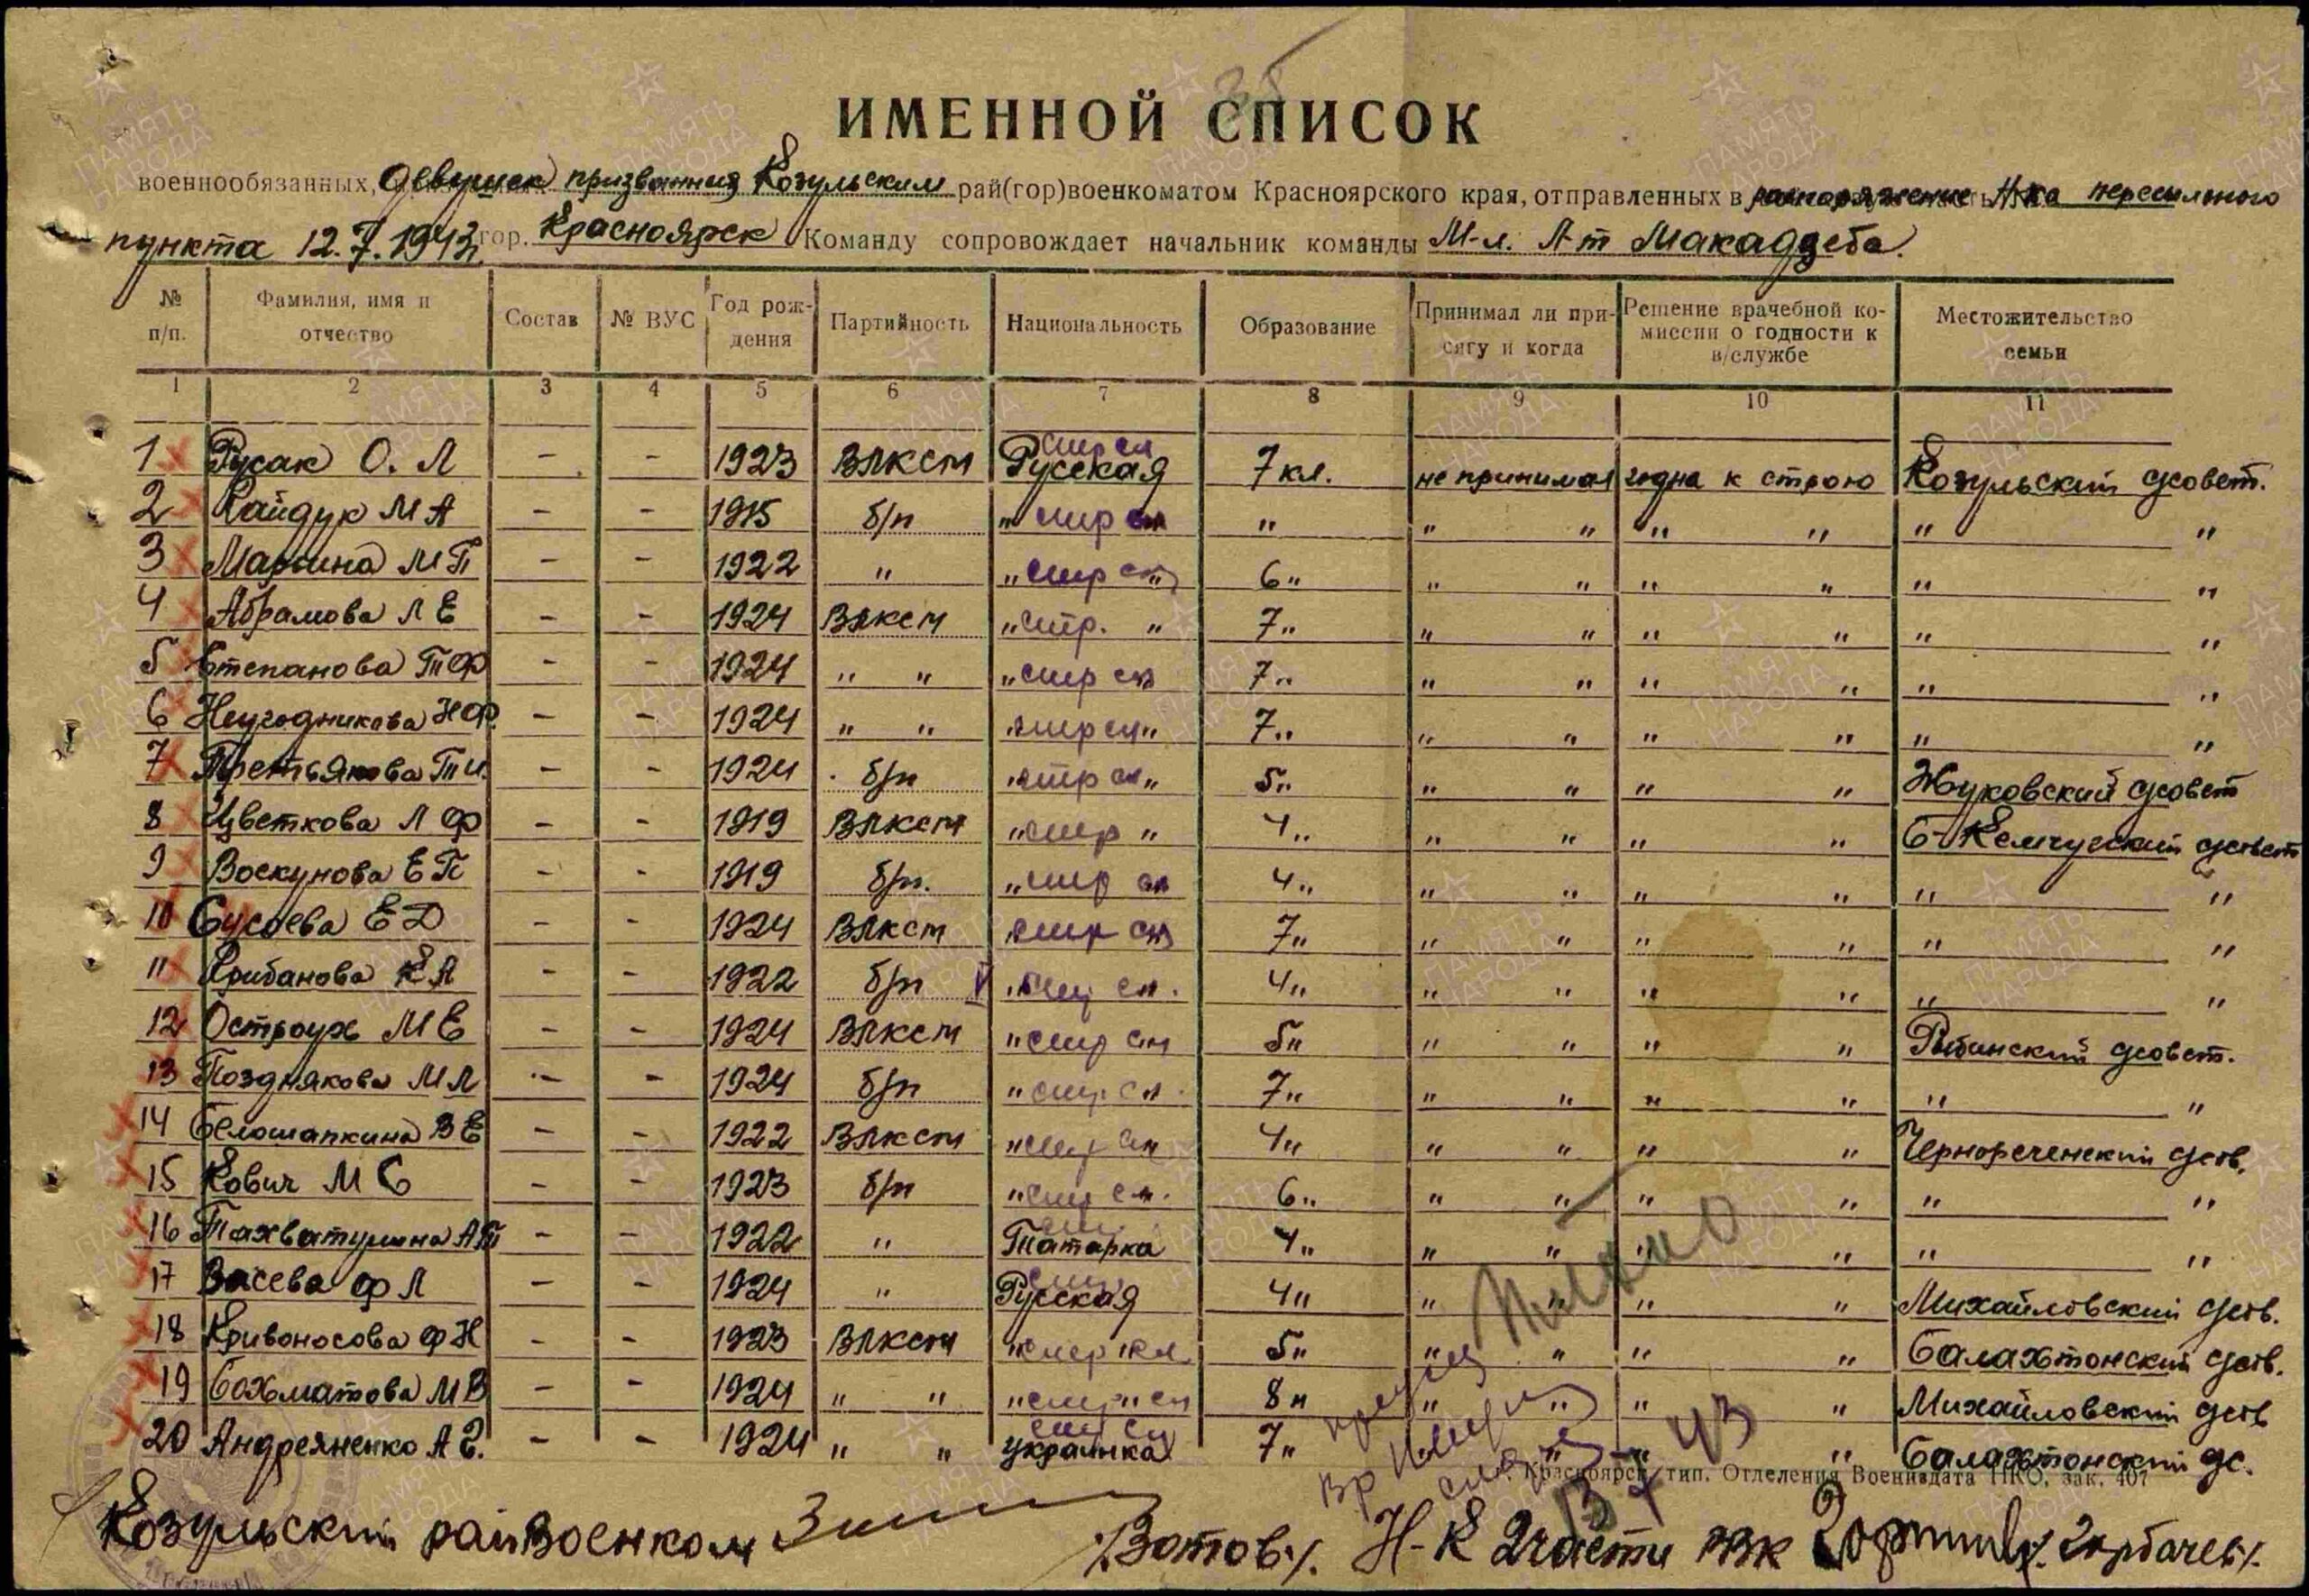 ИМЕННОЙ СПИСОК
военнообязанных, девушек призванных Козульским рай(гор)военкоматом Красноярского края, отправленных в распоряжение Н-ка пересыльного
пункта 12.7.1942 гор. Красноярск Команду сопровождает начальник команды М-л. Л-т
№ п/п. Фамилия, имя и отчество Состав № ВУС Год рождения Партийность Национальность Образование Принимал ли присягу и когда Решение врачебной комиссии о годности к в/службе Местожительство семьи
1 2 3 4 5 6 7 8 9 10 11
1 Русак О. Л - - 1923 ВЛКСМ Русская 7 кл. не принимал годна к строю Козульский с/совет.
2 Гайдук М А - - 1915 б/п " " " " " " " "
3 Марьина М П - - 1922 " " " 6 " " " " " " "
4 Абрамова Л Е - - 1924 ВЛКСМ " " 7 " " " " " " "
5 Степанова Т Ф - - 1924 " " " 7 " " " " " " "
6 Неугодникова Н Ф - - 1924 " " " " 7 " " " " " " "
7 Третьякова Т И. - - 1924 б/п " " 5 " " " " " Жуковский с/совет
8 Цветкова Л Ф - - 1919 ВЛКСМ " " 4 " " " " " Б-Кемчугский с/совет
9 Воскунова Е П - - 1919 б/п. " 4 " " " " " " "
10 Сусоева Е Д - - 1924 ВЛКСМ " 7 " " " " " " "
11 Грибанова К А - - 1922 б/п " 4 " " " " " " "
12 Остроух М Е - - 1924 ВЛКСМ " 5 " " " " " Рыбинский с/совет.
13 Позднякова М Л - - 1924 б/п " 7 " " " " " " "
14 Белошапкина В Е - - 1922 ВЛКСМ " 4 " " " " " Чернореченский с/сов.
15 Кович М С - - 1923 б/п " 6 " " " " " " "
16 Тахватулина А Т - - 1922 " Татарка 4 " " " " " " "
17 Васева Ф Л - - 1924 " Русская 4 " " " " " Михайловский с/сов.
18 Кривоносова Ф Н - - 1923 ВЛКСМ " 5 " " " " " Балахтонский с/сов.
19 Бахматова М В - - 1924 " " " 8 " " " " " Михайловский с/сов
20 Андреяненко А Е. - - 1924 " " украинка 7 " " " " " Балахтонский с/с.
г. Красноярск, тип. Отделения Воениздата НКО, зак. 407
Козульский райвоенком /Зотов/. Н-к 2 части РВК /Горбачев/.